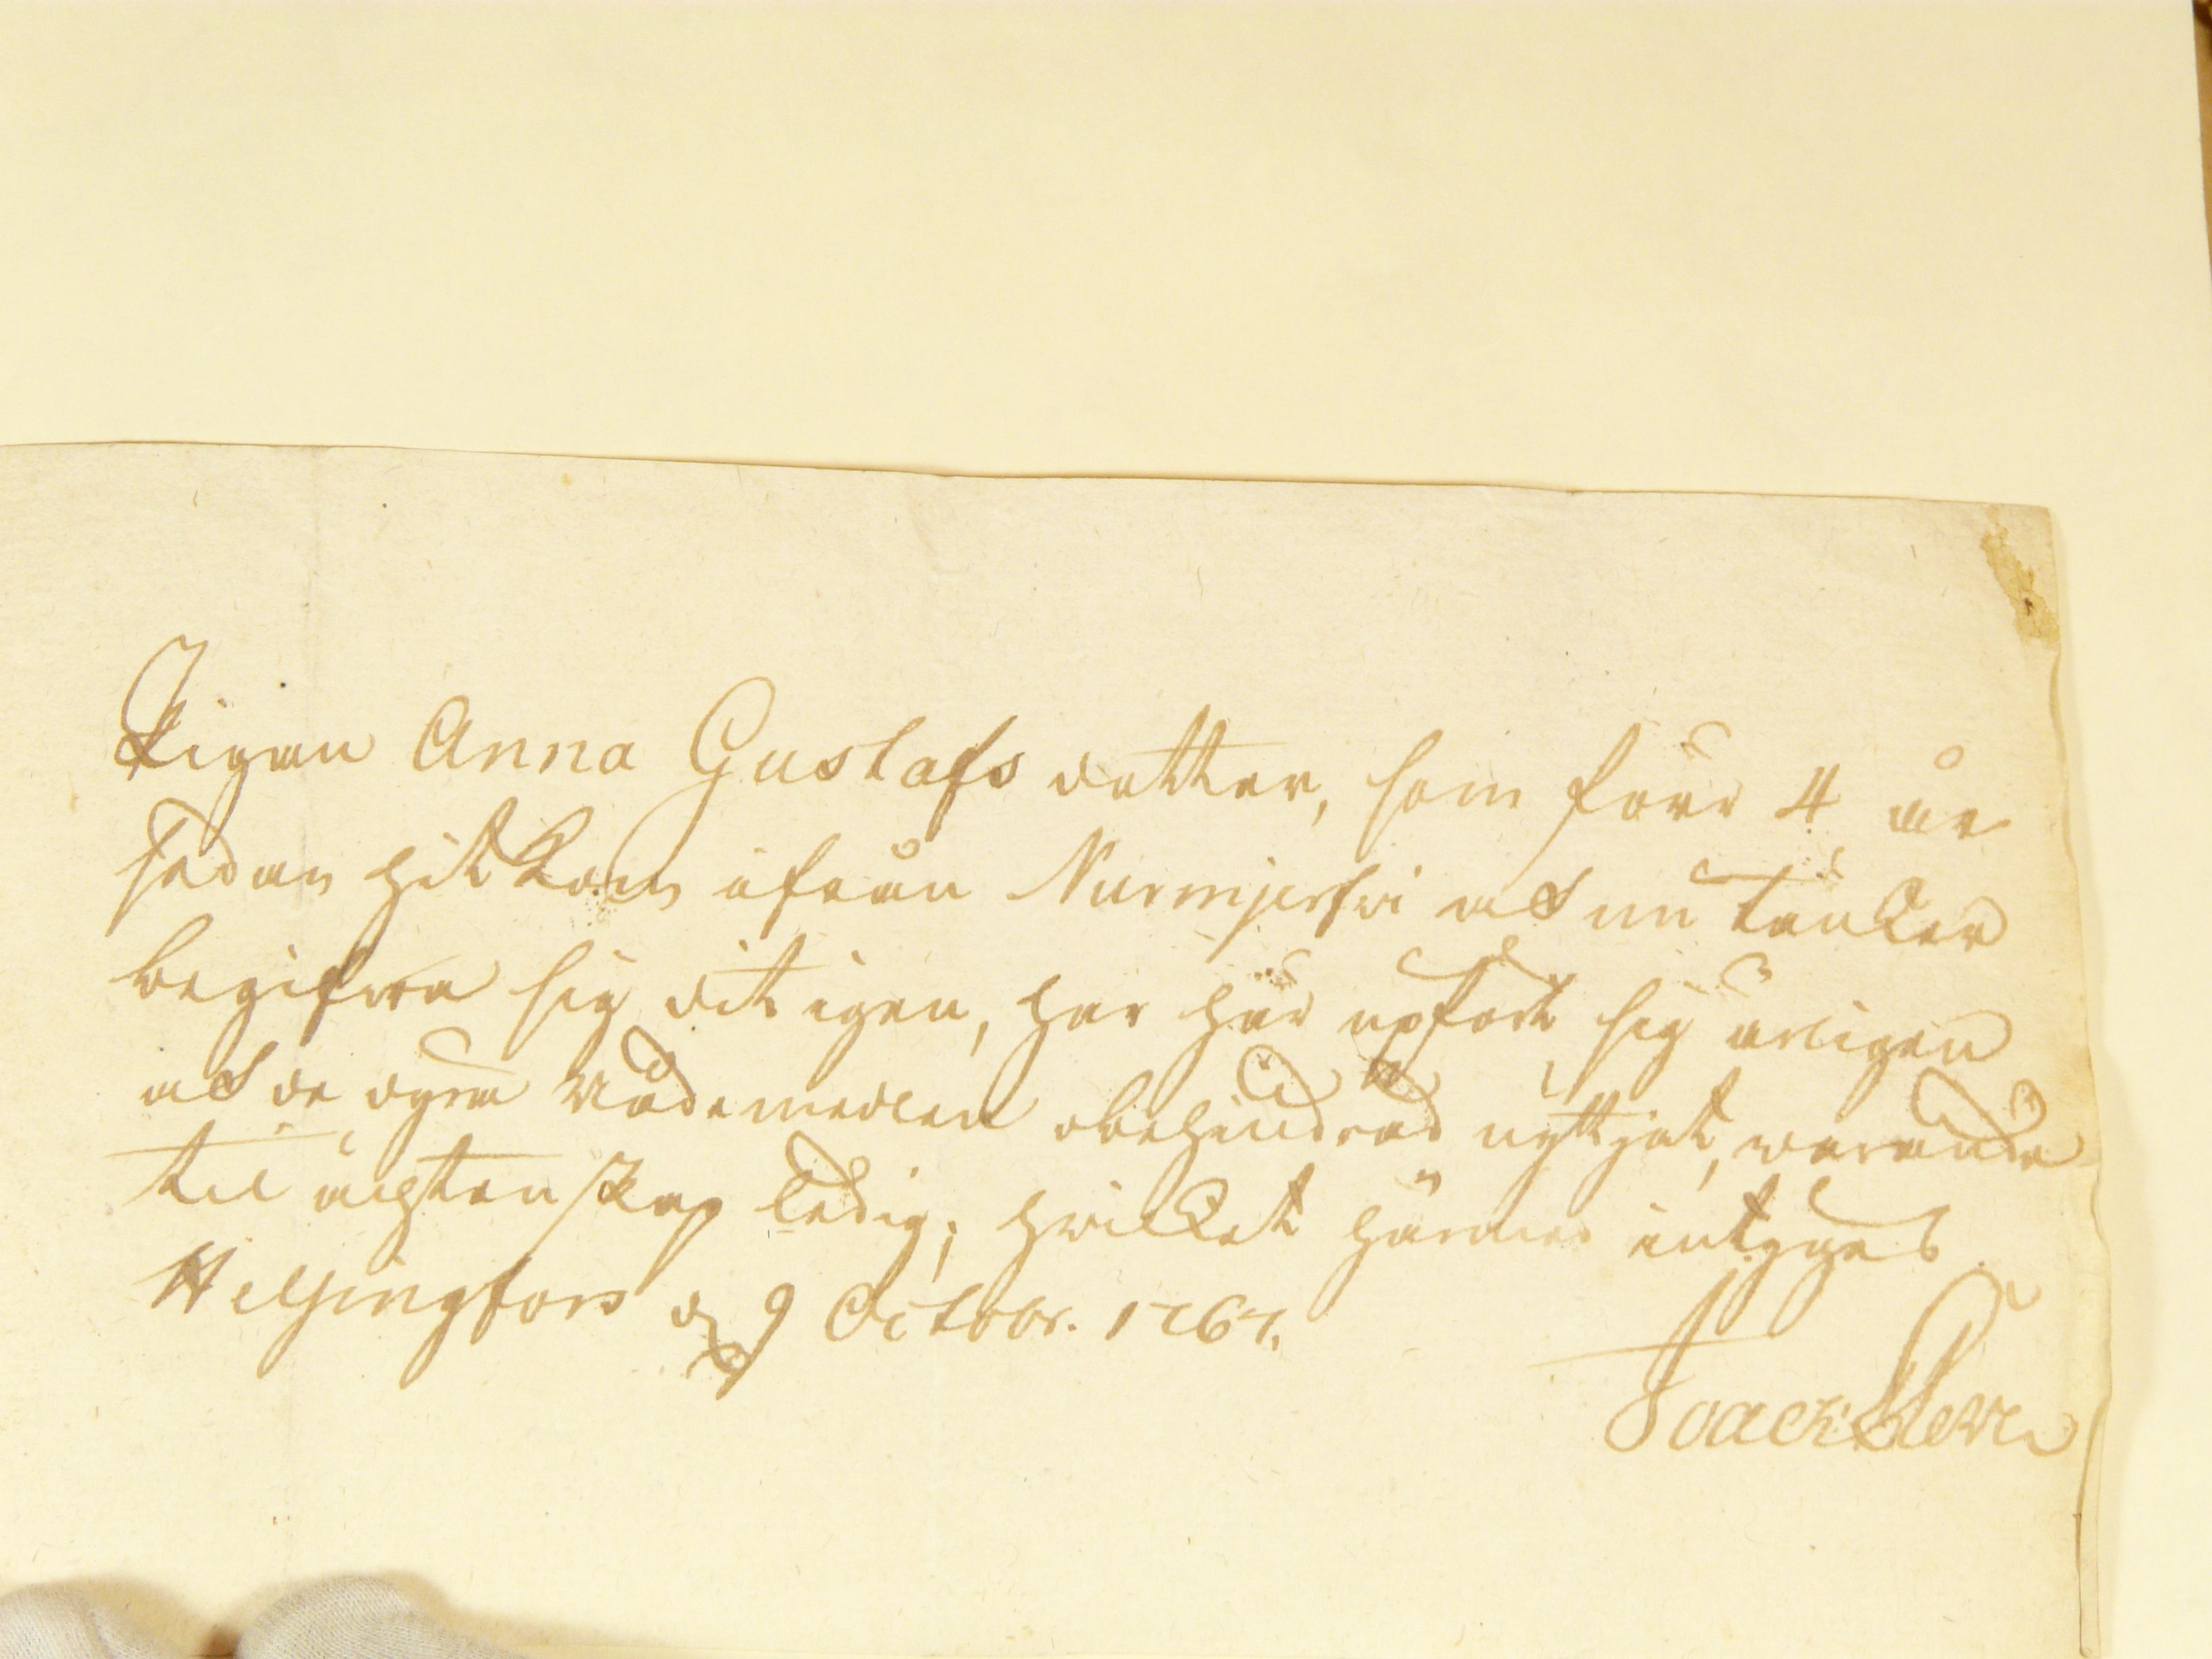 Pigan Anna Gustafs dotter, som förr 4 år
sedan hit kom ifrån Nurmjerfwi och nu tänker
begifwa sig dit igen, har här upfört sig ärligen
och de dyra nådemedlen obehindrad nyttjat, warande
til ächtenskap ledig; hwilket härmed intygas
Helsingfors d 9 Octobr. 1767.